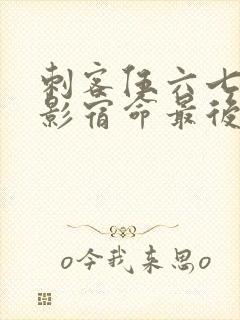 刺客伍六七
影宿命最後
o今我来思o